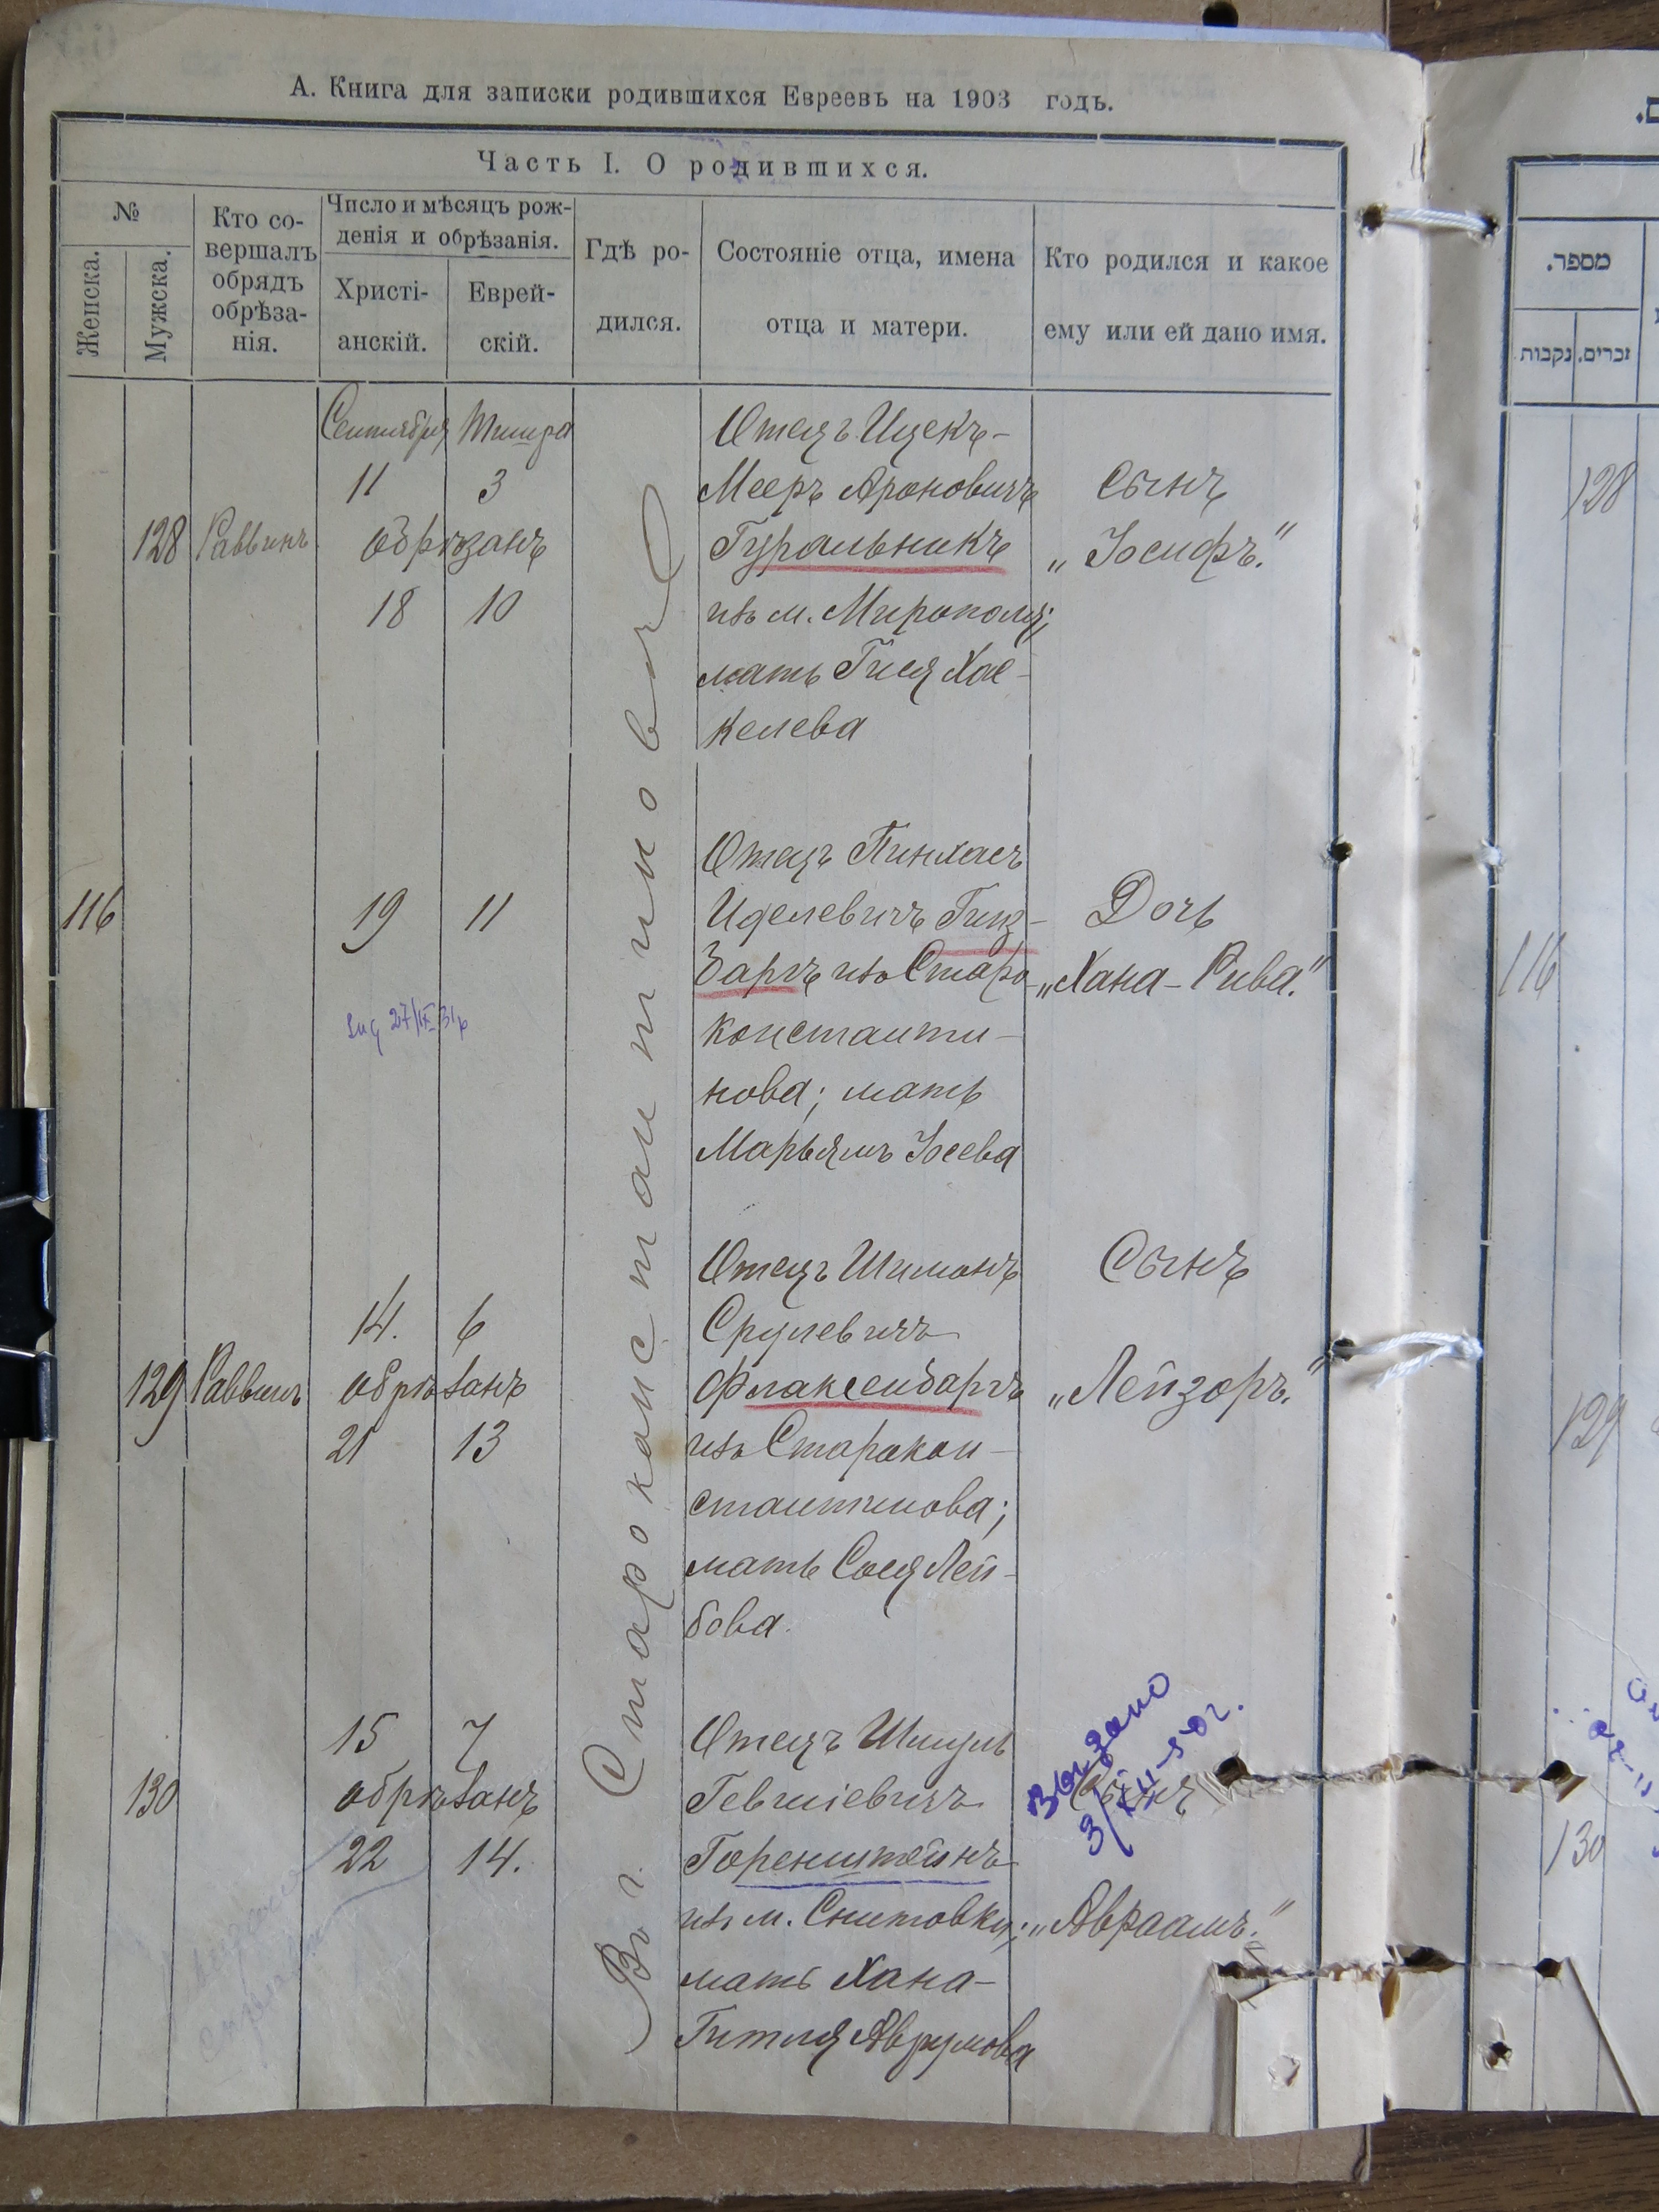 А. Книга для записки родившихся Евреевъ на 1903 годъ.
Часть I. О родившихся.
№
Женска.
Мужска.
Кто со-
вершалъ
обрядъ
обрѣза-
нія.
Число и мѣсяцъ рож-
денія и обрѣзанія.
Христі-
анскій.
Еврей-
скій.
Гдѣ ро-
дился.
Состояніе отца, имена
отца и матери.
Кто родился и какое
ему или ей дано имя.
Въ г. Староконстантиновѣ
Сентября Тишра
128 Раввинъ
11 3
обрѣзанъ
18 10
Отецъ Ицекъ-
Мееръ Ароновичъ
Гуральникъ
изъ м. Мирополя;
мать Гися Хас-
келева
Сынъ
„Іосифъ."
116
19 11
27/IX 31г
Отецъ Пинхасъ
Иделевичъ Гинз-
баргъ изъ Старо-
константи-
нова; мать
Марьямъ Іосева
Дочь
„Хана-Рива."
129 Раввинъ
14. 6
обрѣзанъ
21 13
Отецъ Шимонъ
Срулевичъ
Флаксенбаргъ
изъ Старокон-
стантинова;
мать Сося Лей-
бова.
Сынъ
„Лейзоръ."
130
15 7
обрѣзанъ
22 14.
Отецъ Шмуль
Гевшіевичъ
Горенштейнъ
изъ м. Снитовки;
мать Хана-
Гитля Аврумова
Сынъ
Выдано
3/XII-50г.
„Авраамъ."
מספר.
זכרים.
נקבות
128
116
129
130